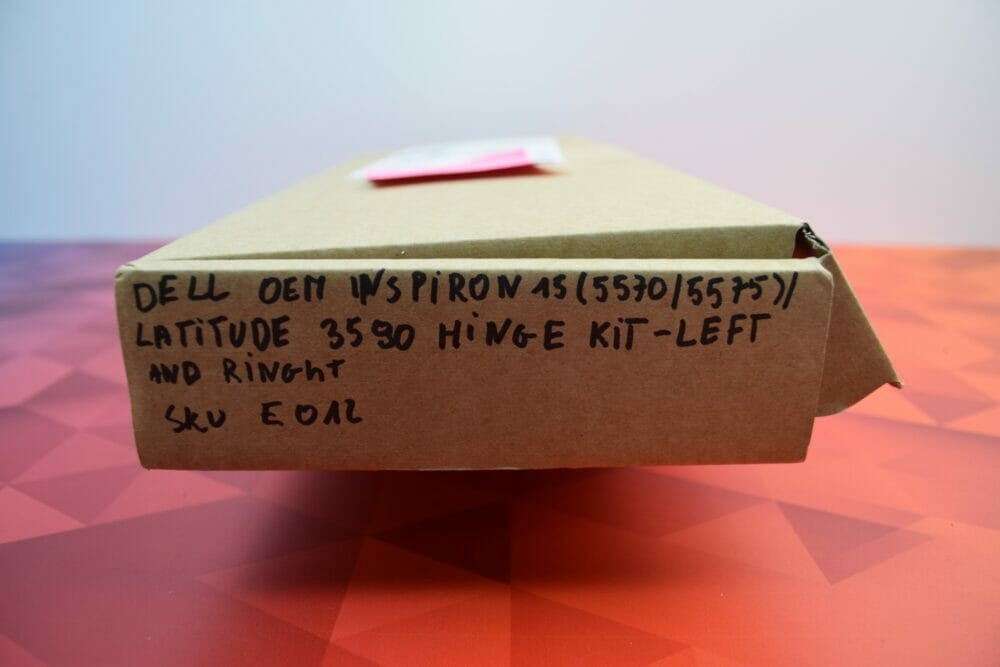 DELL OEM INSPiRON 15 (5570/5575)/
LATiTUDE 3590 HiNGE KiT-LEFT
AND RiNGhT
SKU E012